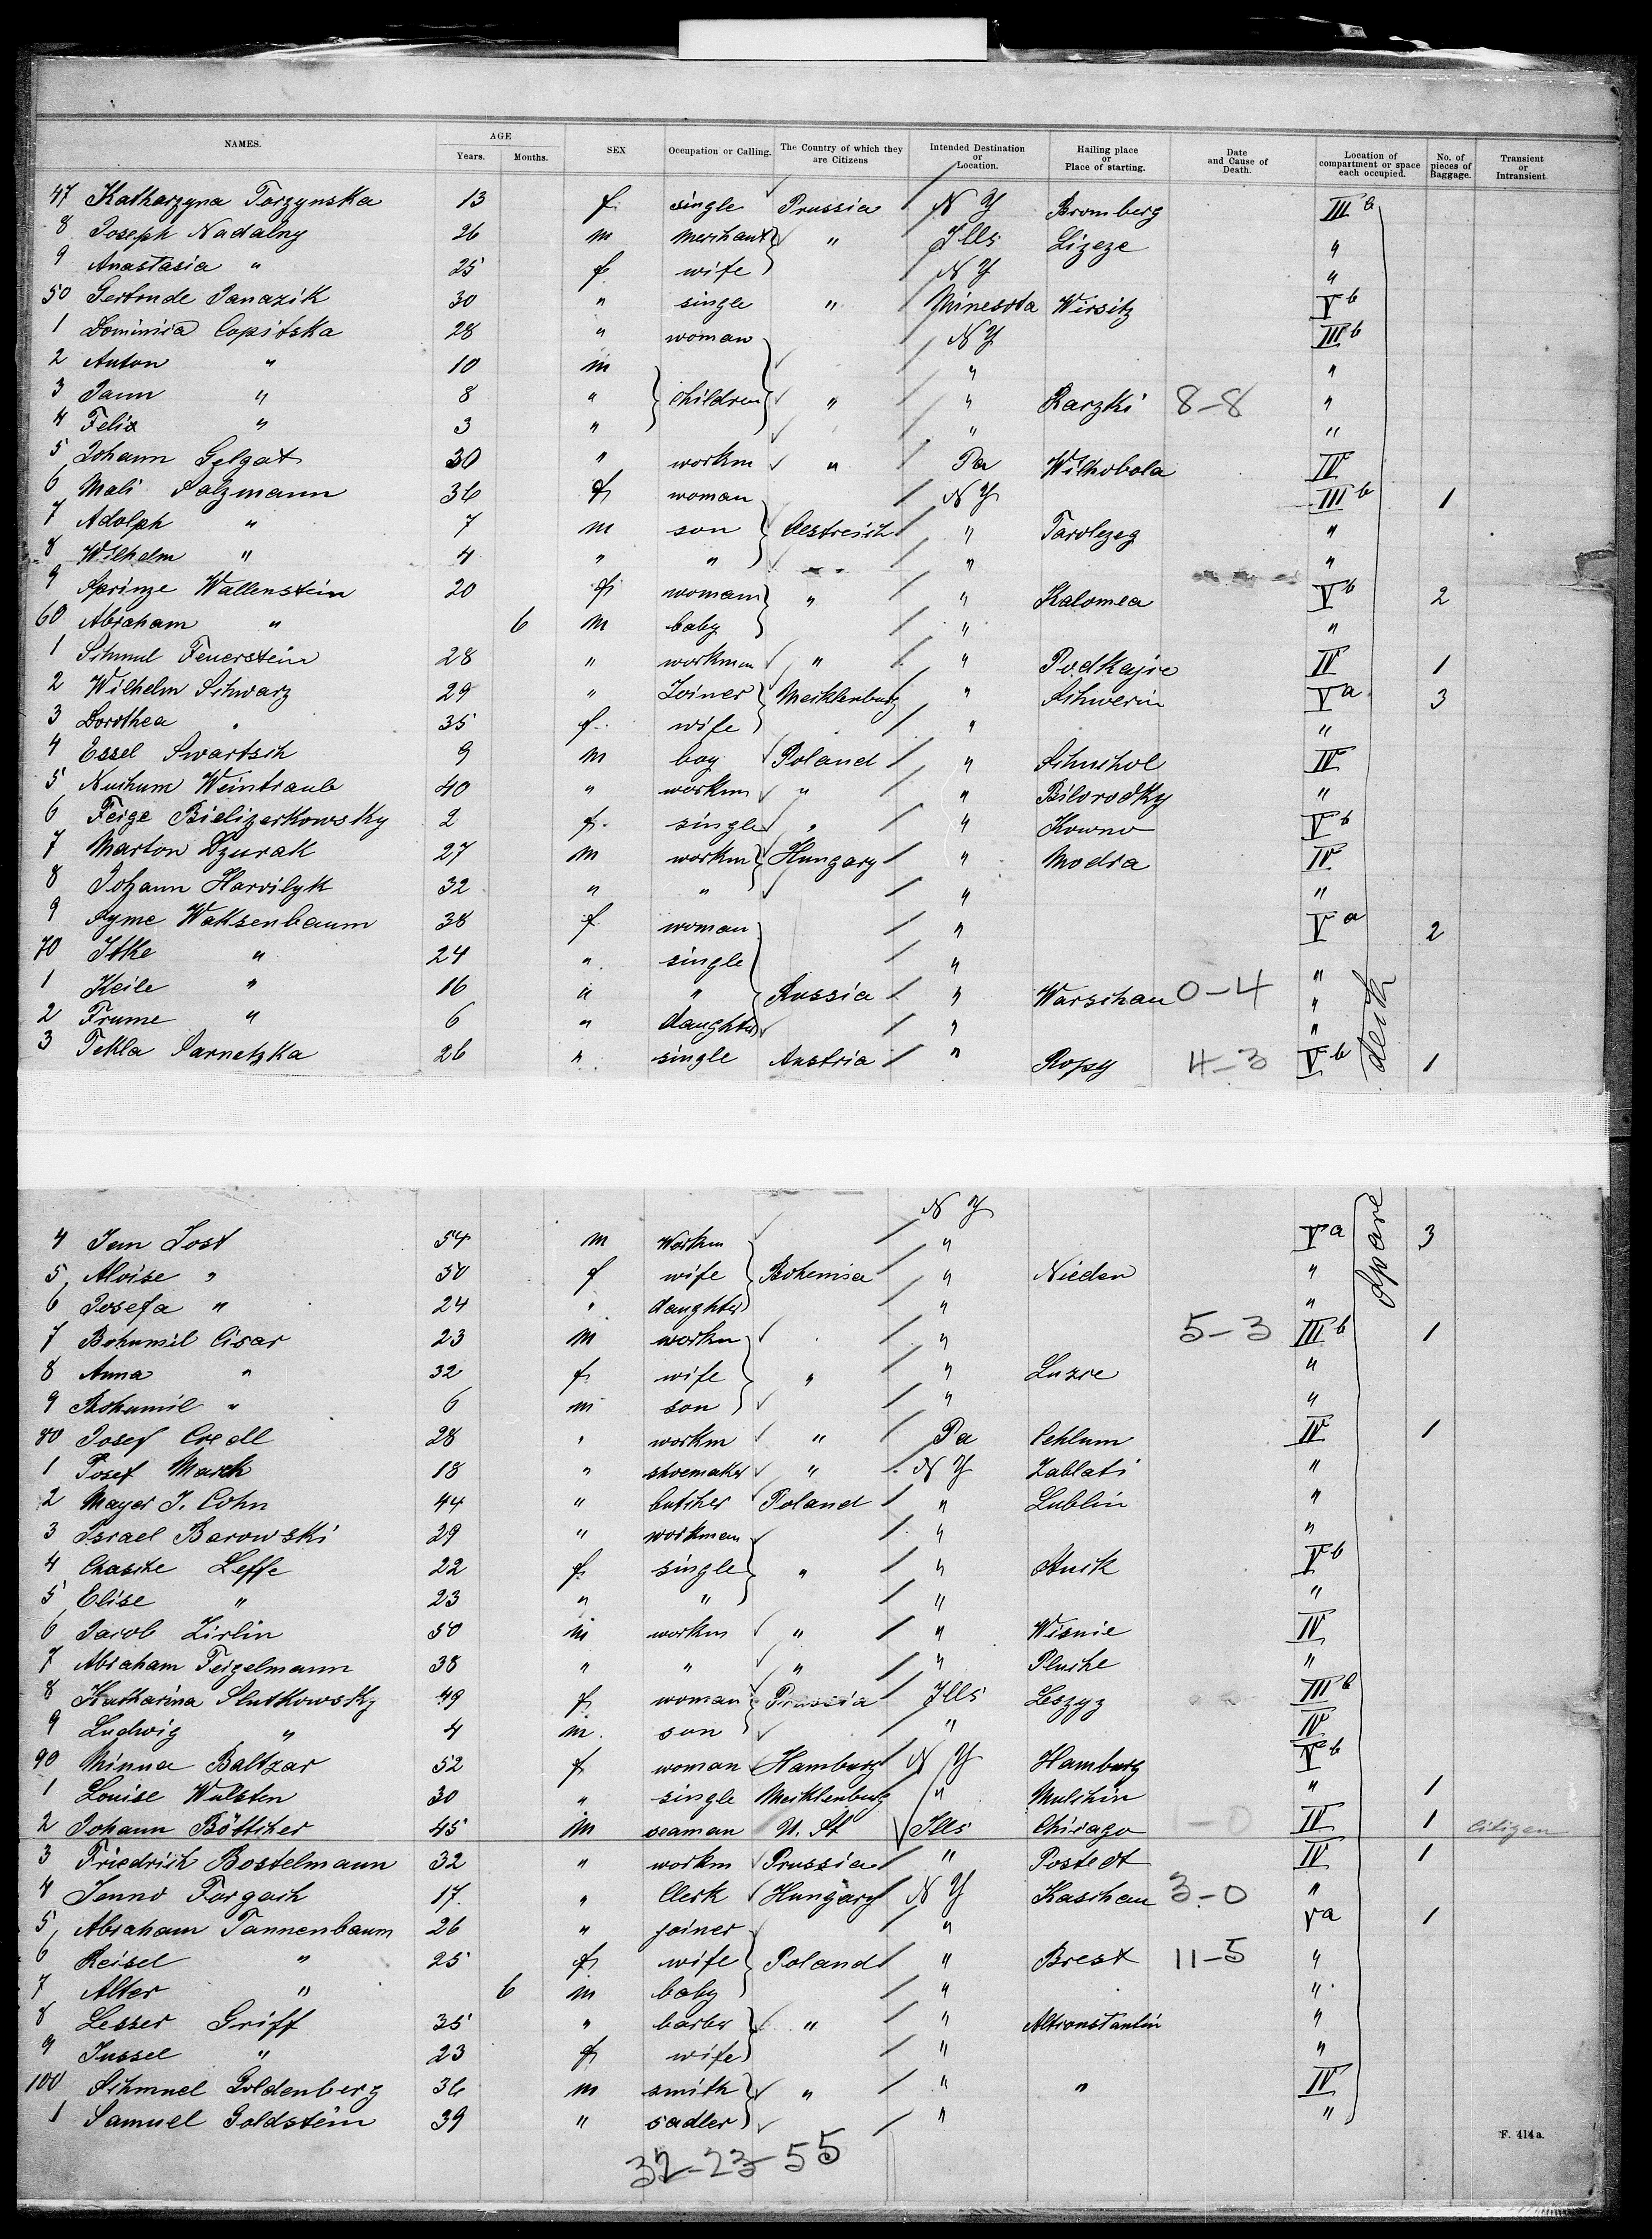 NAMES. AGE Years. Months. SEX Occupation or Calling. The Country of which they are Citizens Intended Destination or Location. Hailing place or Place of starting. Date and Cause of Death. Location of compartment or space each occupied. No. of pieces of Baggage. Transient or Intransient.
47 Katharzyna Torzynska 13 f single Prussia N Y Bromberg III b
8 Joseph Nadalny 26 m merchant " Ills Lizeze "
9 Anastasia " 25 f wife N Y "
50 Gertrude Janazik 30 " single " Minesota Wirsitz V b
1 Dominica Copitska 28 " woman N Y III b
2 Anton " 10 m " "
3 Jann " 8 " children " " Raczki 8-8 "
4 Felix " 3 " " "
5 Johann Gelgat 30 " workm " Pa Wilkobola IV
6 Mali Salzmann 36 f woman N Y III b 1
7 Adolph " 7 m son Oestreich " Tarolezeg "
8 Wilhelm " 4 " " " "
9 Sprinze Wallenstein 20 f woman " " Kalomea V b 2
60 Abraham " 6 m baby " "
1 Schmul Feuerstein 28 " workman " " Podkajce IV 1
2 Wilhelm Schwarz 29 " Joiner Mecklenburg " Schwerin V a 3
3 Dorothea " 35 f wife " "
4 Essel Swartsch 9 m boy Poland " Schuchol IV
5 Nuchum Weintraub 40 " workm " " Bilorodky "
6 Feige Bielizerkowsky 2 f single " " Kowno V b
7 Marton Dzurak 27 m workm Hungary " Modra IV
8 Johann Harvilyk 32 " " " "
9 Syme Waksenbaum 38 f woman " V a 2
70 Itke " 24 " single " "
1 Keile " 16 " " Russia " Warschau 0-4 "
2 Frume " 6 " daughter " "
3 Tekla Sarnetzka 26 " single Austria " Ropy 4-3 V b 1
deck
N Y
4 Jan Jost 54 m workm " V a 3
5 Aloise " 50 f wife Bohemia " Nieden "
6 Josefa " 24 " daughter " "
Spare
7 Bohumil Cisar 23 m workm " 5-3 III b 1
8 Anna " 32 f wife " " Luzce "
9 Bohumil " 6 m son " "
80 Josef Credl 28 " workm " Pa Cehlum IV 1
1 Josef Marck 18 " shoemaker " N Y Zablati "
2 Mayer J. Cohn 44 " butcher Poland " Lublin "
3 Israel Barowski 29 " workman " "
4 Chasche Leffe 22 f single " " Huck V b
5 Elise " 23 " " " "
6 Jacob Zirlin 50 m workm " " Wisnie IV
7 Abraham Feigelmann 38 " " " " Plusche "
8 Katharina Slutkowsky 49 f woman Prussia Ills Leszyz III b
9 Ludwig " 4 m son " IV
90 Minna Baltzar 52 f woman Hamburg N Y Hamburg V b
1 Louise Wulsten 30 " single Mecklenburg " Mulchin " 1
2 Johann Böttcher 45 m seaman U. St Ills Chicago 1-0 IV 1 Citizen
3 Friedrich Bostelmann 32 " workm Prussia " Postedt IV 1
4 Jenno Forgach 17 " Clerk Hungary N Y Kaschau 3-0 "
5 Abraham Tannenbaum 26 " joiner " V a 1
6 Reisel " 25 f wife Poland " Brest 11-5 "
7 Alter " 6 m baby " "
8 Lesser Griff 35 " barber " " Altconstantin "
9 Jussel " 23 f wife " "
100 Schmuel Goldenberg 36 m smith " " " IV
1 Samuel Goldstein 39 " sadler " "
F. 414a.
32-23-55